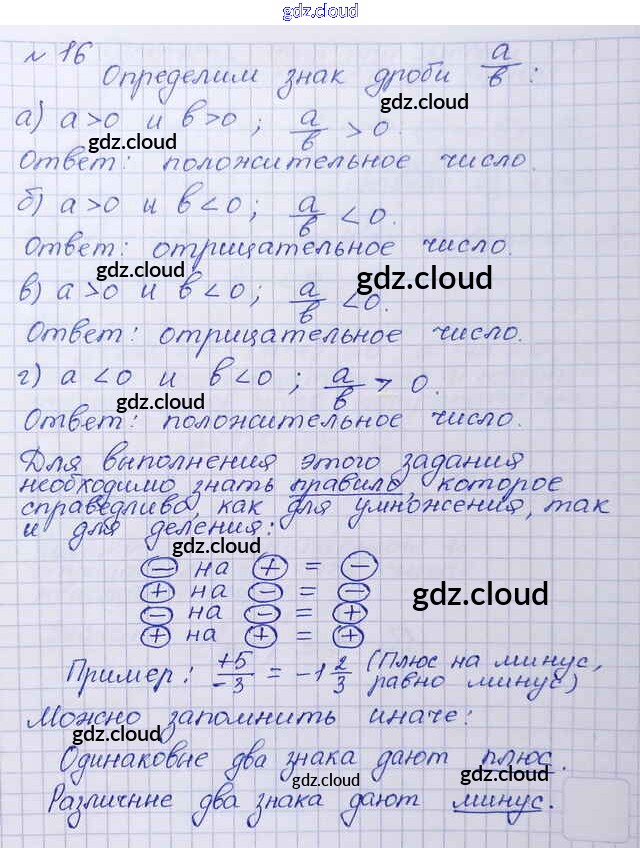 gdz.cloud
№ 16
Определим знак дроби a/b :
gdz.cloud
а) a>0 и b>0 ; a/b > 0.
gdz.cloud
Ответ: положительное число.
б) a>0 и b<0; a/b < 0.
gdz.cloud
Ответ: отрицательное число.
gdz.cloud
gdz.cloud
в) a>0 и b<0; a/b <0.
Ответ: отрицательное число.
г) a <0 и b<0 ; a/b > 0.
gdz.cloud
Ответ: положительное число.
Для выполнения этого задания
необходимо знать правило, которое
справедливо, как для умножения, так
и для деления:
gdz.cloud
− на + = −
+ на − = −
gdz.cloud
− на − = +
+ на + = +
Пример: +5/-3 = -1 2/3 (Плюс на минус,
равно минус)
Можно запомнить иначе:
gdz.cloud
Одинаковые два знака дают плюс.
gdz.cloud
gdz.cloud
Различные два знака дают минус.
gdz.cloud